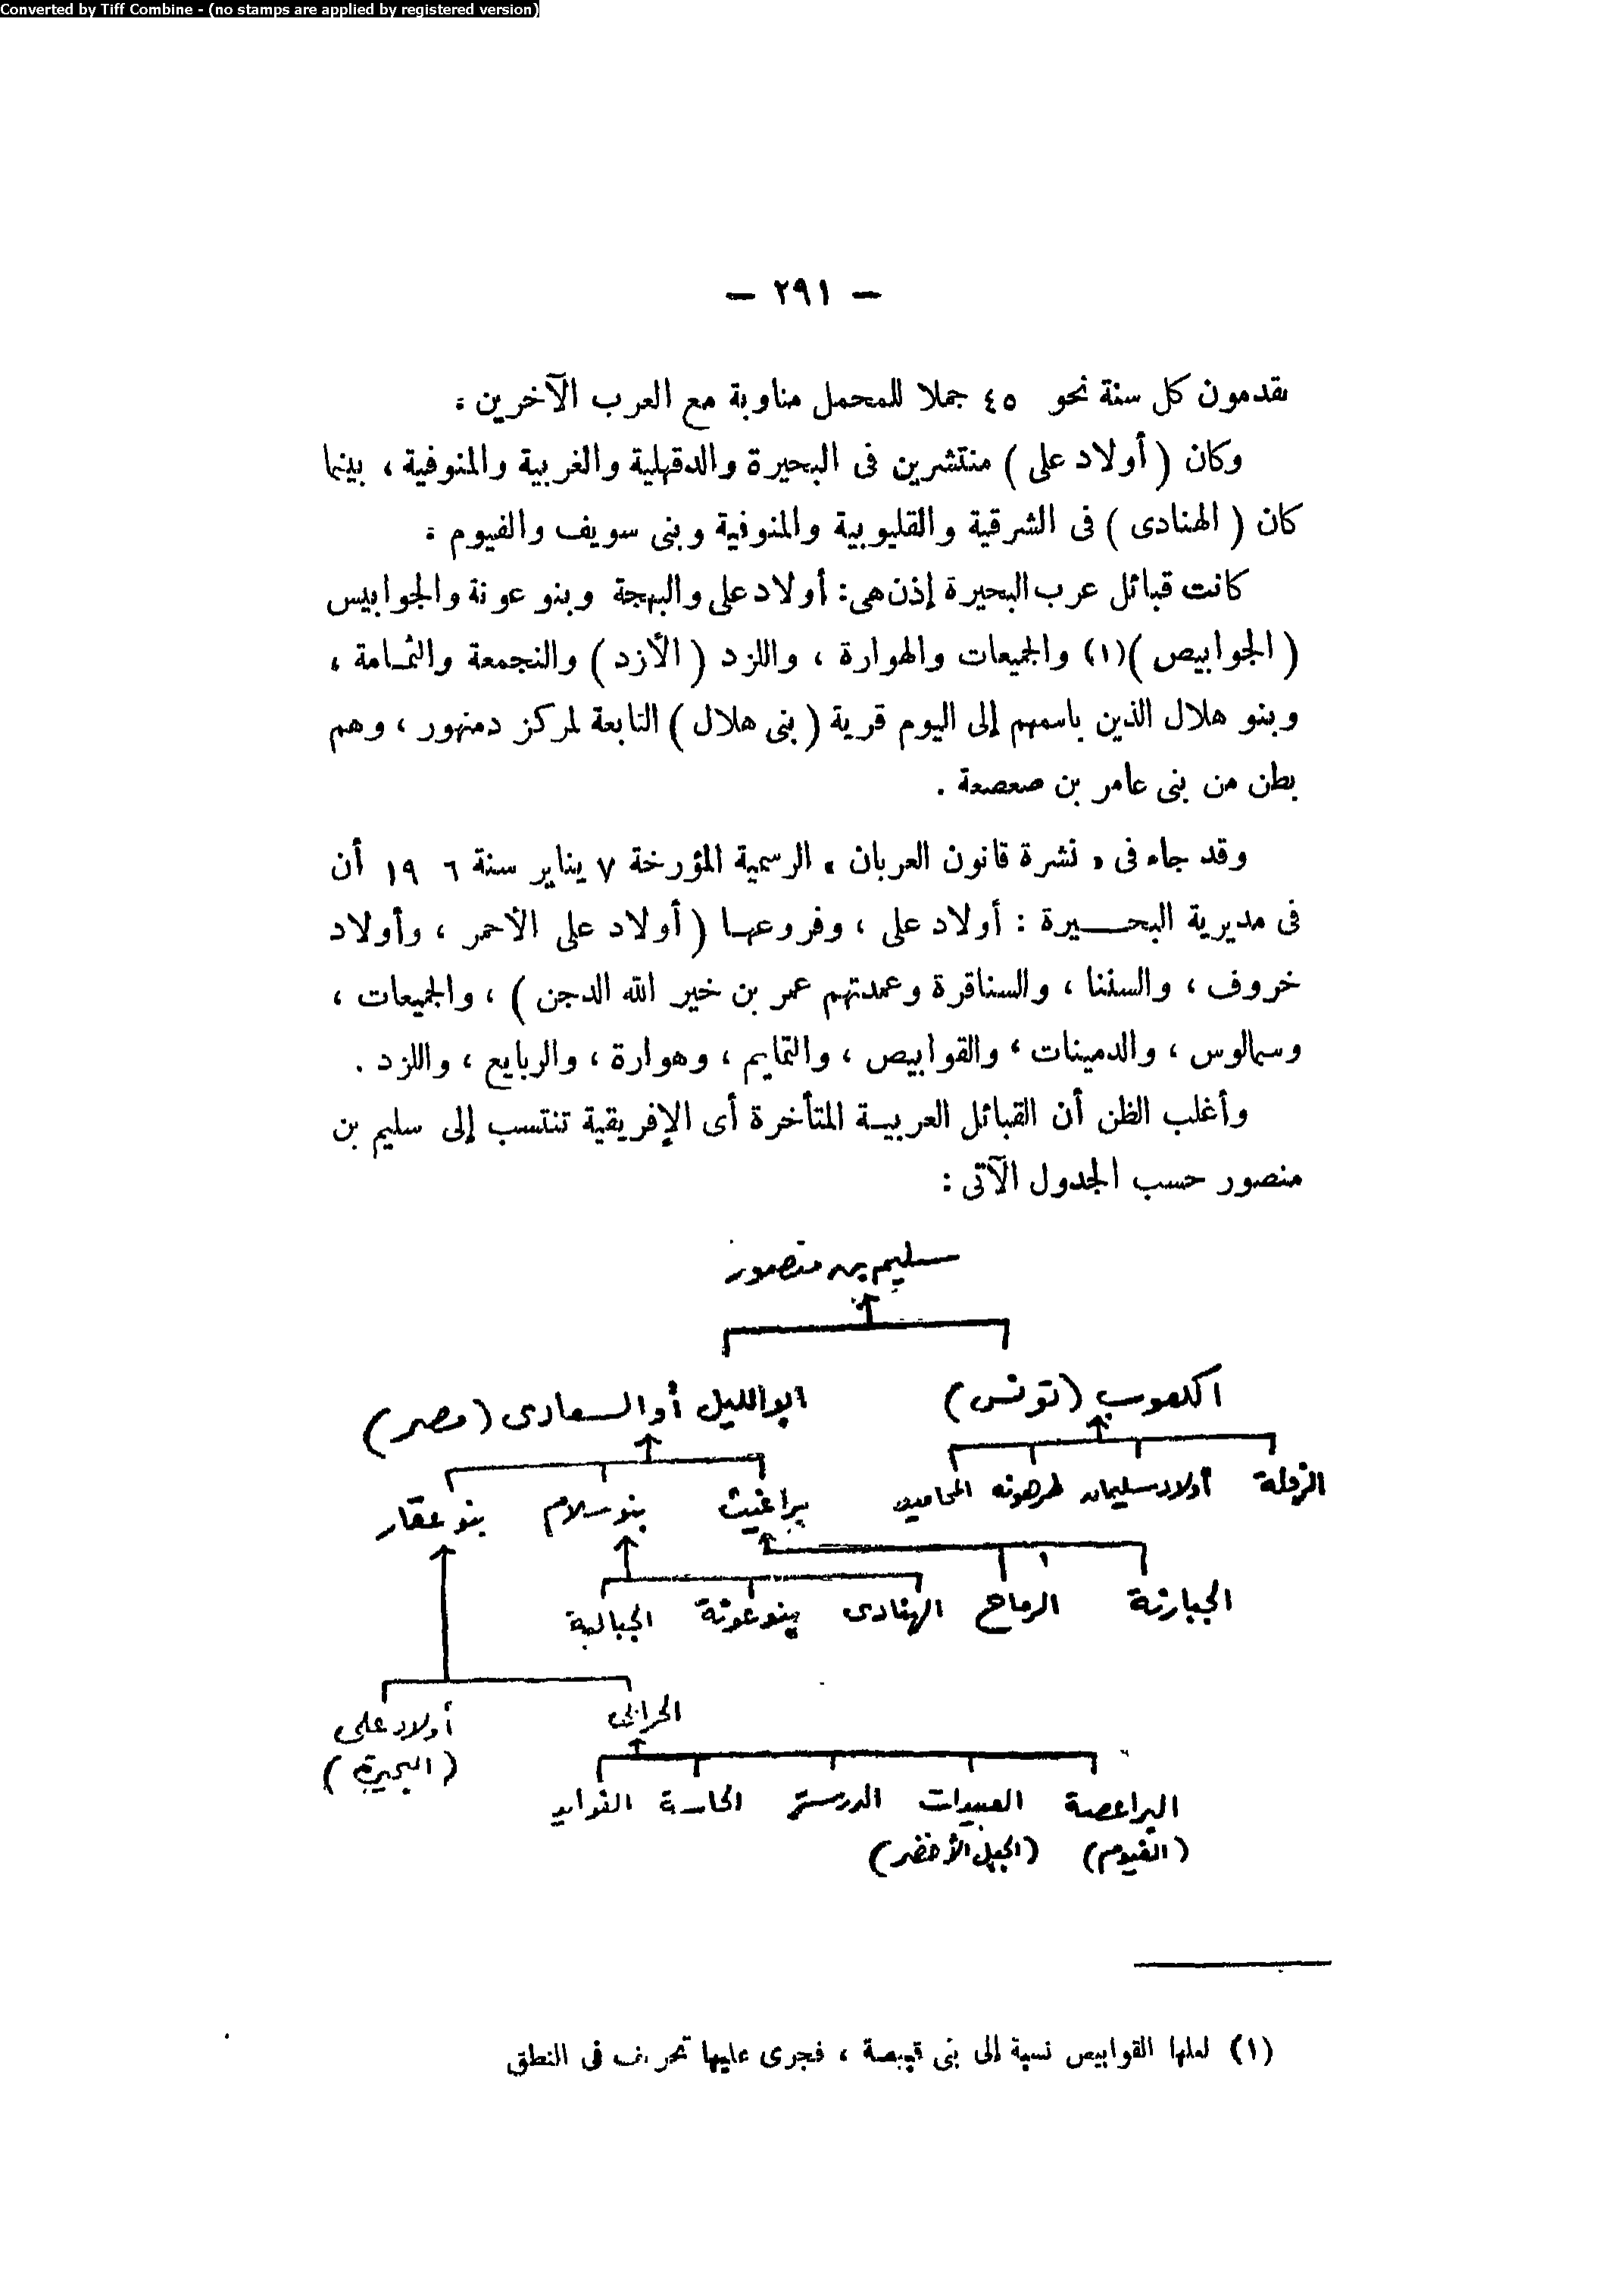 Converted by Tiff Combine - (no stamps are applied by registered version)
— ٢٩١ —
يقدمون كل سنة نحو ٤٥ جملا للمحمل مناوبة مع العرب الآخرين .
وكان ( أولاد على ) منتشرين فى البحيرة والدقهلية والغربية والمنوفية ، بينما
كان ( الهنادى ) فى الشرقية والقليوبية والمنوفية وبنى سويف والفيوم .
كانت قبائل عرب البحيرة إذن هى : أولاد على والبهجة وبنو عونة والجوابيس
( الجوابيص )(١) والجميعات والهوارة ، واللزد ( الأزد ) والنجمعة والثمامة ،
وبنو هلال الذين باسمهم إلى اليوم قرية ( بنى هلال ) التابعة لمركز دمنهور ، وهم
بطن من بنى عامر بن صعصعة .
وقد جاء فى « نشرة قانون العربان » الرسمية المؤرخة ٧ يناير سنة ١٩٠٦ أن
فى مديرية البحـــيرة : أولاد على ، وفروعها ( أولاد على الأحمر ، وأولاد
خروف ، والسننا ، والسناقرة وعمدتهم عمر بن خير الله الدجن ) ، والجميعات ،
وسمالوس ، والدمينات ، والقوابيص ، والتمايم ، وهوارة ، والربايع ، واللزد .
وأغلب الظن أن القبائل العربية المتأخرة أى الإفريقية تنتسب إلى سليم بن
منصور حسب الجدول الآتى :
سليم بن منصور
الكعوب (تونس) ابو الليل أو السعادى (مصر)
الزولة أولاد سليمان طرهونه المحاميد
براغيث بنو سلام بنو عقار
الجبارنة الرماح الهنادى بنو عونة الجبالية
الحرابى أولاد على
(البحيرة)
البراعصة العبيدات الدرسة الحاسة الفوايد
(الفيوم) (الجبل الأخضر)
(١) لعلها القوابيص نسبة إلى بنى قبيصة ، فجرى عليها تحريف فى النطق